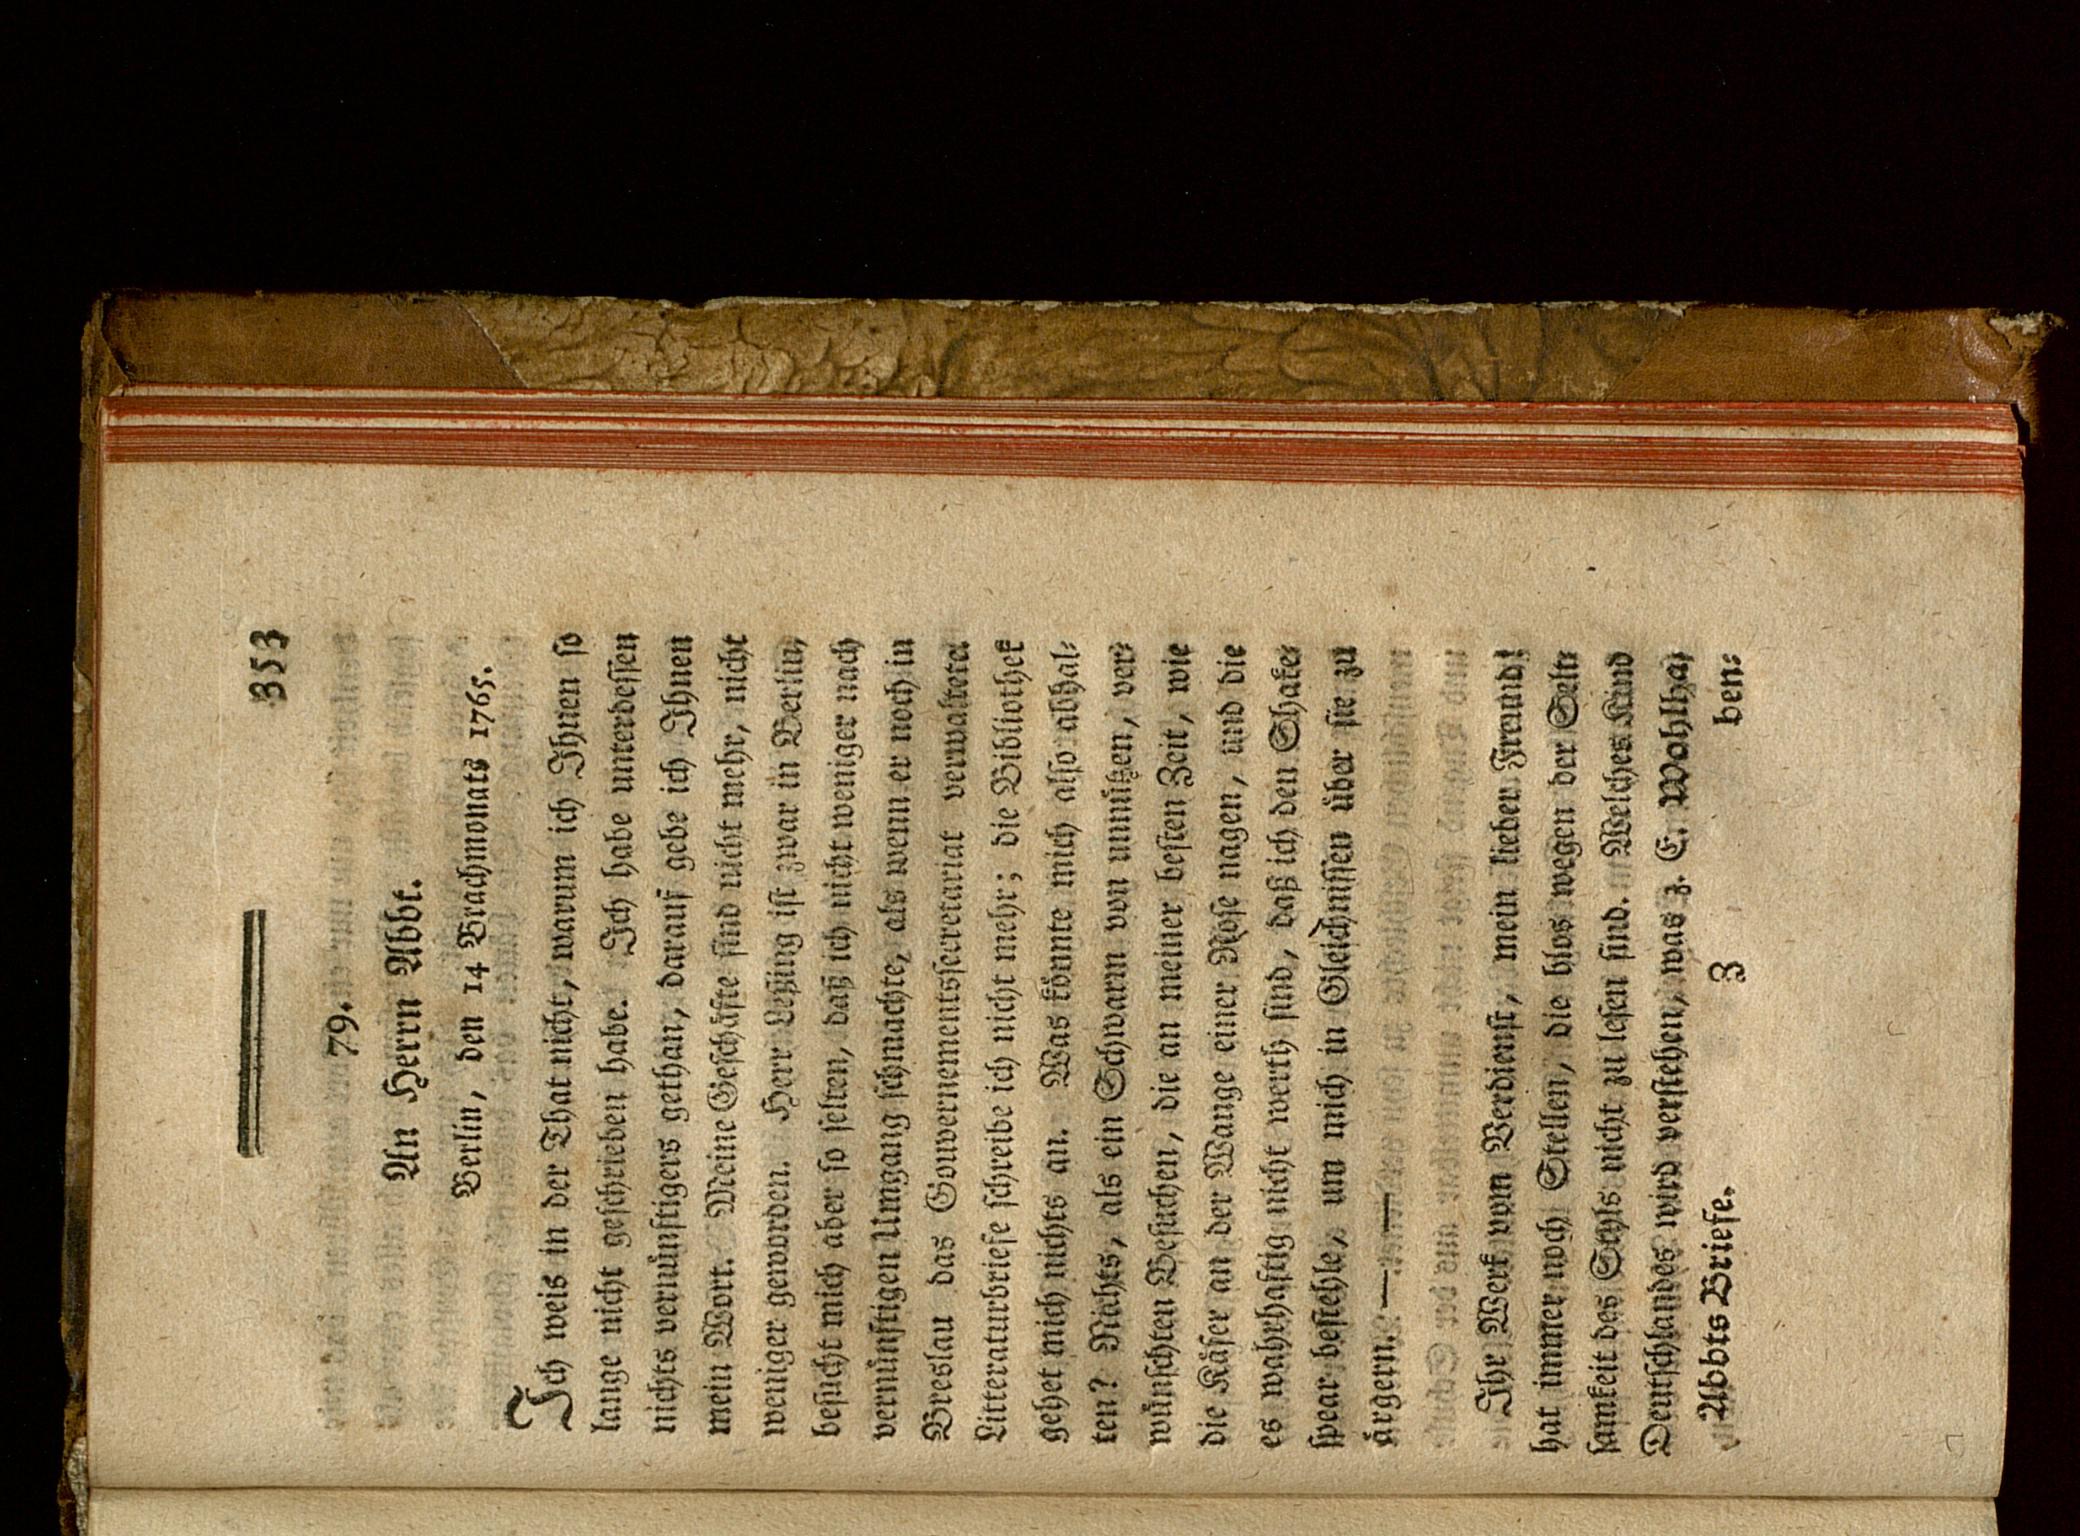 353
79.
An Herrn Abbt.
Berlin, den 14 Brachmonats 1765.
Ich weis in der That nicht, warum ich Ihnen so
lange nicht geschrieben habe. Ich habe unterdessen
nichts vernünftigers gethan, darauf gebe ich Ihnen
mein Wort. Meine Geschäfte sind nicht mehr, nicht
weniger geworden. Herr Leßing ist zwar in Berlin,
besucht mich aber so selten, daß ich nicht weniger nach
vernünftigen Umgang schmachte, als wenn er noch in
Breslau das Gouvernementssecretariat verwaltete.
Litteraturbriefe schreibe ich nicht mehr; die Bibliothek
gehet mich nichts an. Was könnte mich also abhal-
ten? Nichts, als ein Schwarm von unnützen, ver-
wünschten Besuchen, die an meiner besten Zeit, wie
die Käfer an der Wange einer Rose nagen, und die
es wahrhaftig nicht werth sind, daß ich den Shake-
spear bestehle, um mich in Gleichnissen über sie zu
ärgern. — —
Ihr Werk vom Verdienst, mein lieber Freund!
hat immer noch Stellen, die blos wegen der Selt-
samkeit des Styls nicht zu lesen sind. Welches Kind
Deutschlandes wird verstehen, was z. E. Wohlha-
Abbts Briefe. Z ben-